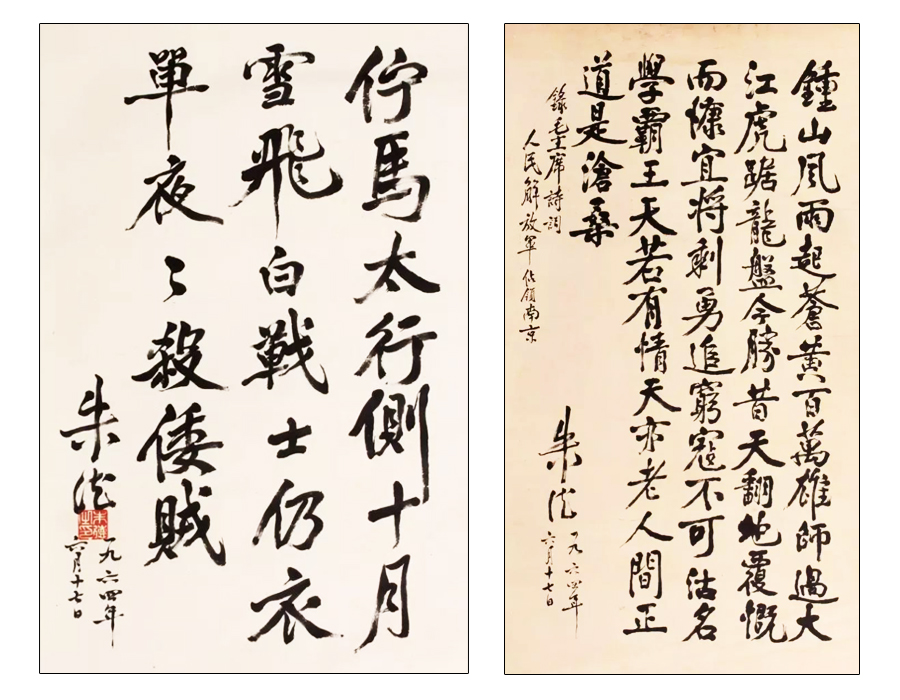 佇馬太行側十月
雪飛白戰士仍衣
單夜〻殺倭賊
朱德
一九六四年
六月十七日
鍾山風雨起蒼黃百萬雄師過大
江虎踞龍盤今勝昔天翻地覆慨
而慷宜將剩勇追窮寇不可沽名
學霸王天若有情天亦老人間正
道是滄桑
錄毛主席詩詞
人民解放軍佔領南京
朱德
一九六四年
六月十七日